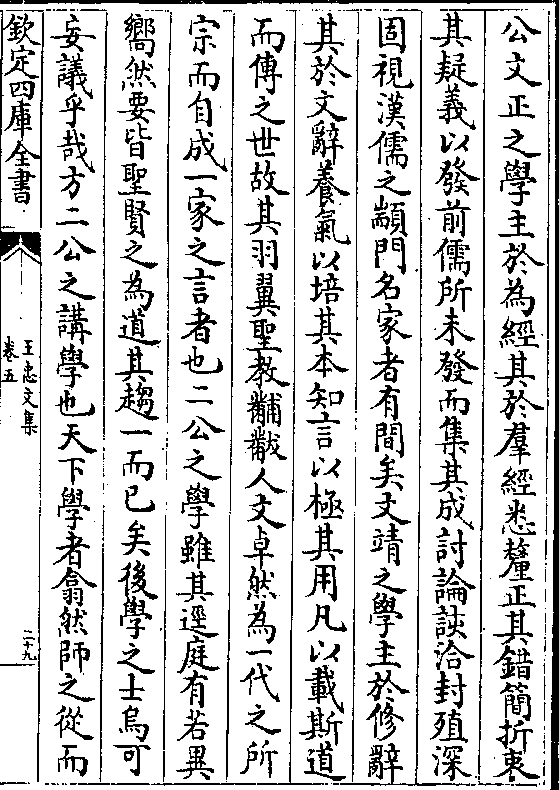 公文正之學主於為經其於羣經悉釐正其錯簡折衷
其疑義以發前儒所未發而集其成討論該洽封殖深
固視漢儒之顓門名家者有間矣文靖之學主於修辭
其於文辭養氣以培其本知言以極其用凡以載斯道
而傳之世故其羽翼聖教黼黻人文卓然為一代之所
宗而自成一家之言者也二公之學雖其逕庭有若異
嚮然要皆聖賢之為道其趨一而已矣後學之士烏可
妄議乎哉方二公之講學也天下學者翕然師之從而
欽定四庫全書
王忠文集
卷五
二十九